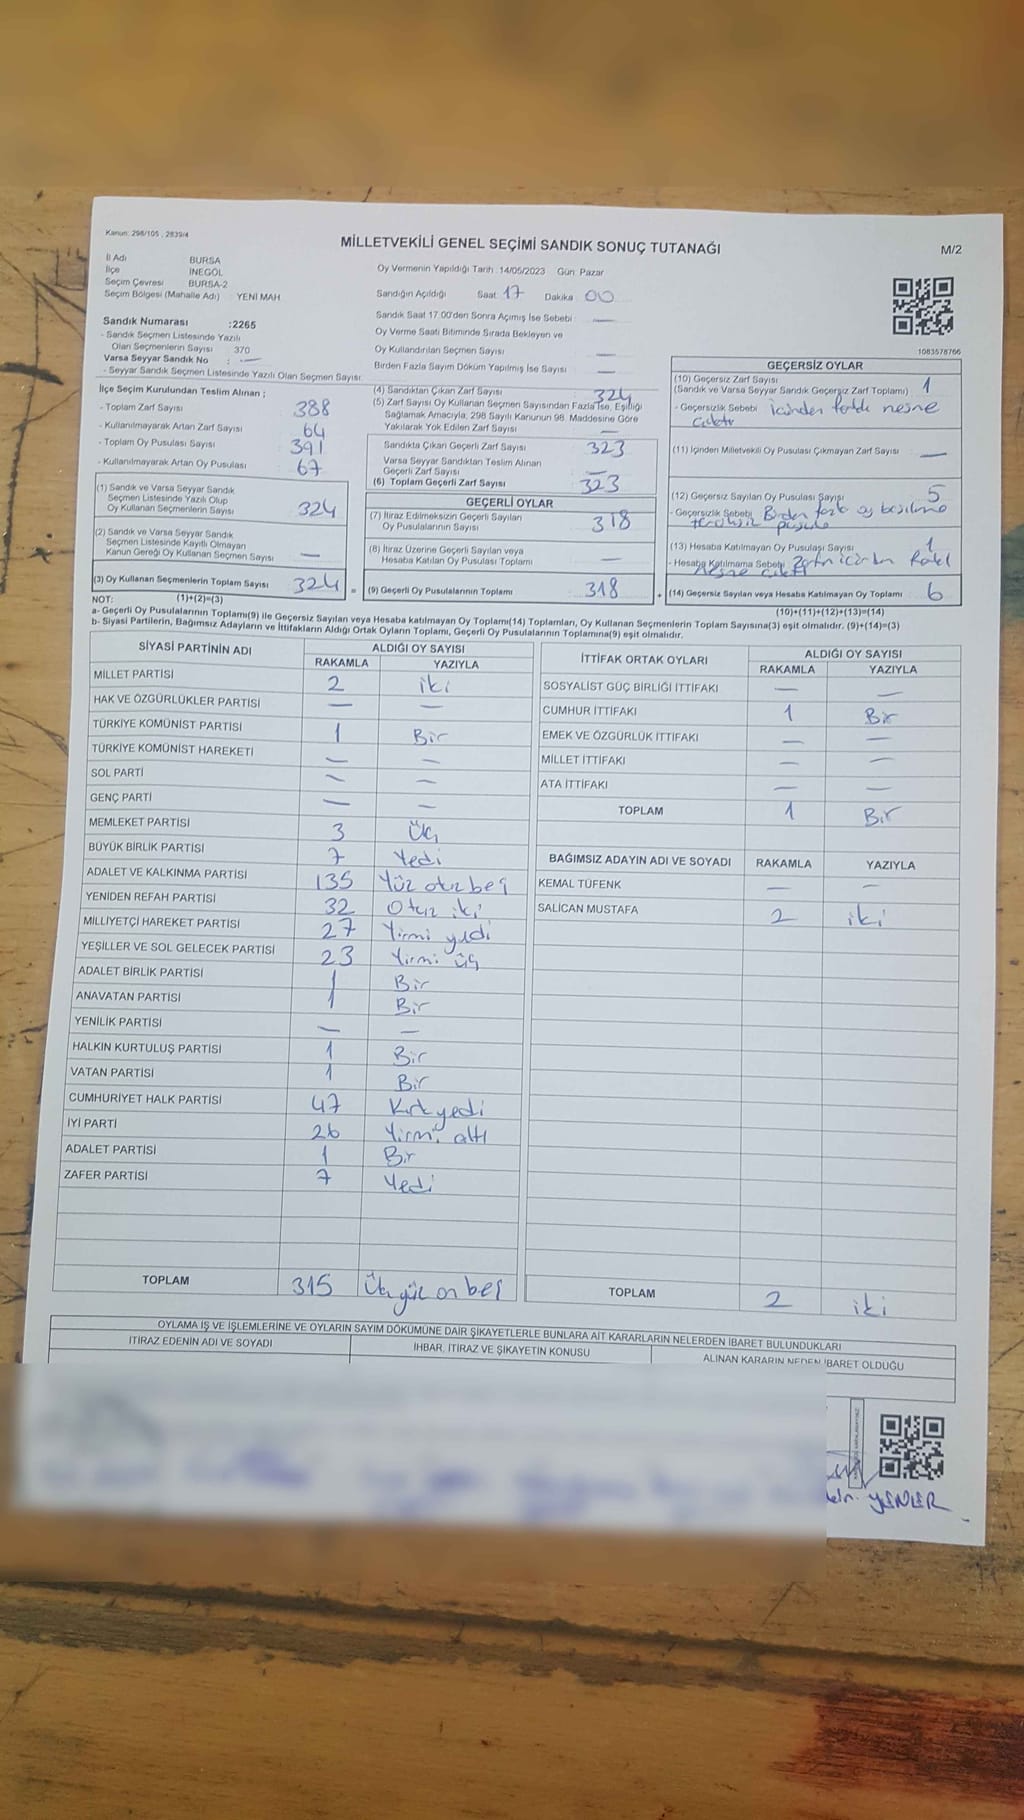 Kanun: 298/105 , 2839/4
MİLLETVEKİLİ GENEL SEÇİMİ SANDIK SONUÇ TUTANAĞI
M/2
İl Adı BURSA
İlçe İNEGÖL
Seçim Çevresi BURSA-2
Seçim Bölgesi (Mahalle Adı) YENİ MAH
Oy Vermenin Yapıldığı Tarih :14/05/2023 Gün: Pazar
Sandığın Açıldığı Saat 17 Dakika 00
Sandık Saat 17.00'den Sonra Açımış İse Sebebi —
Oy Verme Saati Bitiminde Sırada Bekleyen ve
Oy Kullandırılan Seçmen Sayısı —
Birden Fazla Sayım Döküm Yapılmış İse Sayısı —
1083578766
Sandık Numarası :2265
- Sandık Seçmen Listesinde Yazılı
Olan Seçmenlerin Sayısı 370
Varsa Seyyar Sandık No : —
- Seyyar Sandık Seçmen Listesinde Yazılı Olan Seçmen Sayısı:
İlçe Seçim Kurulundan Teslim Alınan ;
- Toplam Zarf Sayısı 388
- Kullanılmayarak Artan Zarf Sayısı 64
- Toplam Oy Pusulası Sayısı 391
- Kullanılmayarak Artan Oy Pusulası 67
(1) Sandık ve Varsa Seyyar Sandık
Seçmen Listesinde Yazılı Olup
Oy Kullanan Seçmenlerin Sayısı 324
(2) Sandık ve Varsa Seyyar Sandık
Seçmen Listesinde Kayıtlı Olmayan
Kanun Gereği Oy Kullanan Seçmen Sayısı —
(3) Oy Kullanan Seçmenlerin Toplam Sayısı 324 =
(4) Sandıktan Çıkan Zarf Sayısı 324
(5) Zarf Sayısı Oy Kullanan Seçmen Sayısından Fazla İse, Eşitliği
Sağlamak Amacıyla, 298 Sayılı Kanunun 98. Maddesine Göre
Yakılarak Yok Edilen Zarf Sayısı —
Sandıkta Çıkan Geçerli Zarf Sayısı 323
Varsa Seyyar Sandıktan Teslim Alınan
Geçerli Zarf Sayısı —
(6) Toplam Geçerli Zarf Sayısı 323
GEÇERLİ OYLAR
(7) İtiraz Edilmeksizin Geçerli Sayılan
Oy Pusulalarının Sayısı 318
(8) İtiraz Üzerine Geçerli Sayılan veya
Hesaba Katılan Oy Pusulası Toplamı —
(9) Geçerli Oy Pusulalarının Toplamı 318 +
GEÇERSİZ OYLAR
(10) Geçersiz Zarf Sayısı
(Sandık ve Varsa Seyyar Sandık Geçersiz Zarf Toplamı) 1
- Geçersizlik Sebebi içinden farklı nesne
çıktı
(11) İçinden Milletvekili Oy Pusulası Çıkmayan Zarf Sayısı —
(12) Geçersiz Sayılan Oy Pusulası Sayısı 5
- Geçersizlik Sebebi Birden fazla oy basılmış
tercihsiz pusula
(13) Hesaba Katılmayan Oy Pusulası Sayısı 1
- Hesaba Katılmama Sebebi Zarfın içinden farklı
nesne çıktı
(14) Geçersiz Sayılan veya Hesaba Katılmayan Oy Toplamı 6
NOT: (1)+(2)=(3)
(10)+(11)+(12)+(13)=(14)
a- Geçerli Oy Pusulalarının Toplamı(9) ile Geçersiz Sayılan veya Hesaba katılmayan Oy Toplamı(14) Toplamları, Oy Kullanan Seçmenlerin Toplam Sayısına(3) eşit olmalıdır. (9)+(14)=(3)
b- Siyasi Partilerin, Bağımsız Adayların ve İttifakların Aldığı Ortak Oyların Toplamı, Geçerli Oy Pusulalarının Toplamına(9) eşit olmalıdır.
SİYASİ PARTİNİN ADI ALDIĞI OY SAYISI
RAKAMLA YAZIYLA
MİLLET PARTİSİ 2 iki
HAK VE ÖZGÜRLÜKLER PARTİSİ — —
TÜRKİYE KOMÜNİST PARTİSİ 1 Bir
TÜRKİYE KOMÜNİST HAREKETİ — —
SOL PARTİ — —
GENÇ PARTİ — —
MEMLEKET PARTİSİ 3 Üç
BÜYÜK BİRLİK PARTİSİ 7 Yedi
ADALET VE KALKINMA PARTİSİ 135 Yüz otuz beş
YENİDEN REFAH PARTİSİ 32 Otuz iki
MİLLİYETÇİ HAREKET PARTİSİ 27 Yirmi yedi
YEŞİLLER VE SOL GELECEK PARTİSİ 23 Yirmi üç
ADALET BİRLİK PARTİSİ 1 Bir
ANAVATAN PARTİSİ 1 Bir
YENİLİK PARTİSİ — —
HALKIN KURTULUŞ PARTİSİ 1 Bir
VATAN PARTİSİ 1 Bir
CUMHURİYET HALK PARTİSİ 47 Kırk yedi
İYİ PARTİ 26 Yirmi altı
ADALET PARTİSİ 1 Bir
ZAFER PARTİSİ 7 Yedi
TOPLAM 315 Üç yüz on beş
İTTİFAK ORTAK OYLARI ALDIĞI OY SAYISI
RAKAMLA YAZIYLA
SOSYALİST GÜÇ BİRLİĞİ İTTİFAKI — —
CUMHUR İTTİFAKI 1 Bir
EMEK VE ÖZGÜRLÜK İTTİFAKI — —
MİLLET İTTİFAKI — —
ATA İTTİFAKI — —
TOPLAM 1 Bir
BAĞIMSIZ ADAYIN ADI VE SOYADI RAKAMLA YAZIYLA
KEMAL TÜFENK — —
SALİCAN MUSTAFA 2 iki
TOPLAM 2 iki
OYLAMA İŞ VE İŞLEMLERİNE VE OYLARIN SAYIM DÖKÜMÜNE DAİR ŞİKAYETLERLE BUNLARA AİT KARARLARIN NELERDEN İBARET BULUNDUKLARI
İTİRAZ EDENİN ADI VE SOYADI İHBAR, İTİRAZ VE ŞİKAYETİN KONUSU ALINAN KARARIN NEDEN İBARET OLDUĞU
YENLER